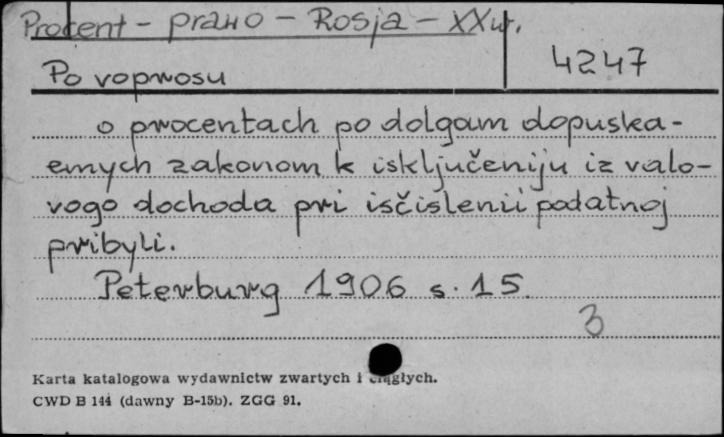 Procent - prawo - Rosja - XX w.
4247
Po voprosu
o procentach po dolgam dopuska-
emych zakonom k isključeniju iz valo-
vogo dochoda pri isčislenii podatnoj
pribyli.
Peterburg 1906 s. 15.
3
Karta katalogowa wydawnictw zwartych i ciągłych.
CWD B 144 (dawny B-15b). ZGG 91.